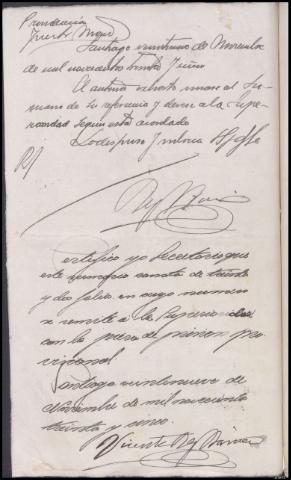 Providencia
Juez Sr.
Santiago veintinueve de Noviembre
de mil novecientos treinta y cinco
El anterior unase al su-
mario de su referencia y dese a la Supe-
rioridad segun esta acordado
Lo dispuso y rubrica SSª
Certifico yo Secretario que
este sumario consta de treinta
y dos folios en cuyo numero
se remite a la Superioridad
con la pieza de prision pro
visional
Santiago veintinueve de
Noviembre de mil novecientos
treinta y cinco.
Vicente Rey